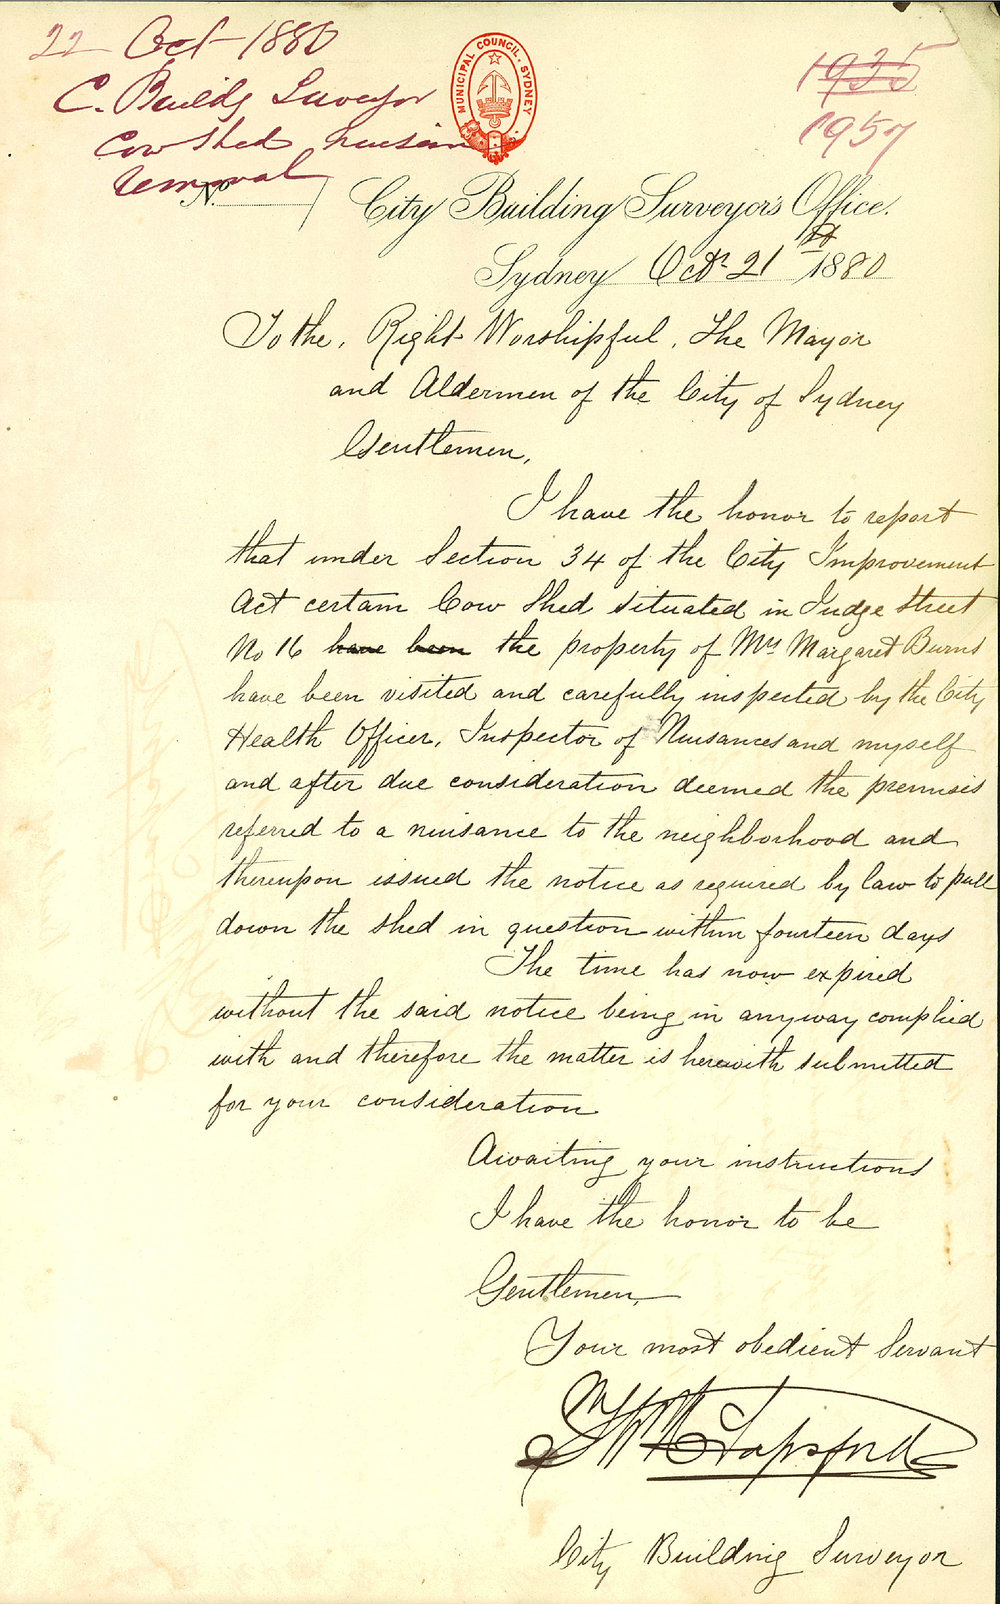 22 Oct 1880
C. Buildg Surveyor
Cow Shed
removal
MUNICIPAL COUNCIL. SYDNEY.
1925
1957
No.
City Building Surveyor's Office.
Sydney Octr. 21st 1880
To the, Right Worshipful, The Mayor
and Aldermen of the City of Sydney
Gentlemen,
I have the honor to report
that under Section 34 of the City Improvement
Act certain Cow Shed situated in Judge Street
No 16 have been the property of Mrs Margaret Burns
have been visited and carefully inspected by the City
Health Officer, Inspector of Nuisances and myself
and after due consideration deemed the premises
referred to a nuisance to the neighborhood and
thereupon issued the notice as required by law to pull
down the shed in question within fourteen days
The time has now expired
without the said notice being in anyway complied
with and therefore the matter is herewith submitted
for your consideration
Awaiting your instructions
I have the honor to be
Gentlemen,
Your most obedient Servant
City Building Surveyor